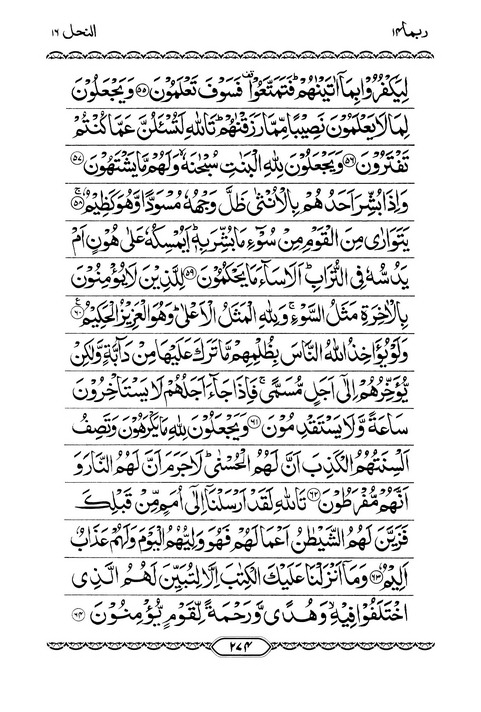 ربما ۱۴ النحل ۱۶
لِيَكْفُرُوْا بِمَاۤ اٰتَيْنٰهُمْ ؕ فَتَمَتَّعُوْا ۫ فَسَوْفَ تَعْلَمُوْنَ ﴿۵۵﴾ وَ يَجْعَلُوْنَ
لِمَا لَا يَعْلَمُوْنَ نَصِيْبًا مِّمَّا رَزَقْنٰهُمْ ؕ تَاللّٰهِ لَتُسْـَٔلُنَّ عَمَّا كُنْتُمْ
تَفْتَرُوْنَ ﴿۵۶﴾ وَ يَجْعَلُوْنَ لِلّٰهِ الْبَنٰتِ سُبْحٰنَهٗ ۙ وَ لَهُمْ مَّا يَشْتَهُوْنَ ﴿۵۷﴾
وَ اِذَا بُشِّرَ اَحَدُهُمْ بِالْاُنْثٰى ظَلَّ وَجْهُهٗ مُسْوَدًّا وَّ هُوَ كَظِيْمٌ ۚ﴿۵۸﴾
يَتَوَارٰى مِنَ الْقَوْمِ مِنْ سُوْٓءِ مَا بُشِّرَ بِهٖ ؕ اَيُمْسِكُهٗ عَلٰى هُوْنٍ اَمْ
يَدُسُّهٗ فِى التُّرَابِ ؕ اَلَا سَآءَ مَا يَحْكُمُوْنَ ﴿۵۹﴾ لِلَّذِيْنَ لَا يُؤْمِنُوْنَ
بِالْاٰخِرَةِ مَثَلُ السَّوْءِ ۚ وَ لِلّٰهِ الْمَثَلُ الْاَعْلٰى ؕ وَ هُوَ الْعَزِيْزُ الْحَكِيْمُ ﴿۶۰﴾ ع
وَ لَوْ يُؤَاخِذُ اللّٰهُ النَّاسَ بِظُلْمِهِمْ مَّا تَرَكَ عَلَيْهَا مِنْ دَآبَّةٍ وَّ لٰكِنْ
يُّؤَخِّرُهُمْ اِلٰۤى اَجَلٍ مُّسَمًّى ۚ فَاِذَا جَآءَ اَجَلُهُمْ لَا يَسْتَاْخِرُوْنَ
سَاعَةً وَّ لَا يَسْتَقْدِمُوْنَ ﴿۶۱﴾ وَ يَجْعَلُوْنَ لِلّٰهِ مَا يَكْرَهُوْنَ وَ تَصِفُ
اَلْسِنَتُهُمُ الْكَذِبَ اَنَّ لَهُمُ الْحُسْنٰى ؕ لَا جَرَمَ اَنَّ لَهُمُ النَّارَ وَ
اَنَّهُمْ مُّفْرَطُوْنَ ﴿۶۲﴾ تَاللّٰهِ لَقَدْ اَرْسَلْنَاۤ اِلٰۤى اُمَمٍ مِّنْ قَبْلِكَ
فَزَيَّنَ لَهُمُ الشَّيْطٰنُ اَعْمَالَهُمْ فَهُوَ وَلِيُّهُمُ الْيَوْمَ وَ لَهُمْ عَذَابٌ
اَلِيْمٌ ﴿۶۳﴾ وَ مَاۤ اَنْزَلْنَا عَلَيْكَ الْكِتٰبَ اِلَّا لِتُبَيِّنَ لَهُمُ الَّذِى
اخْتَلَفُوْا فِيْهِ ۙ وَ هُدًى وَّ رَحْمَةً لِّقَوْمٍ يُّؤْمِنُوْنَ ﴿۶۴﴾
۲۷۴